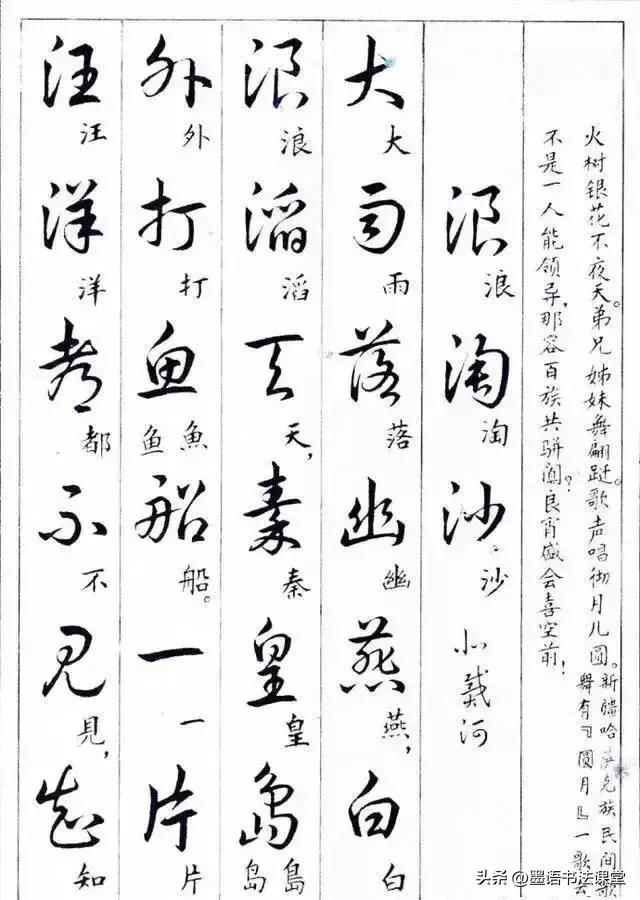 火树银花不夜天。弟兄姊妹舞翩跹。歌声唱彻月儿圆。
新疆哈萨克族民间歌
舞有『圆月』一歌云
不是一人能领导，那容百族共骈阗？良宵盛会喜空前！
浪淘沙 北戴河
浪淘沙
大雨落幽燕白
大雨落幽燕，白
浪滔天秦皇岛
浪滔天，秦皇島岛
外打鱼船一片
外打魚鱼船。一片
汪洋都不见知
汪洋都不見，知
头条 @墨语书法课堂